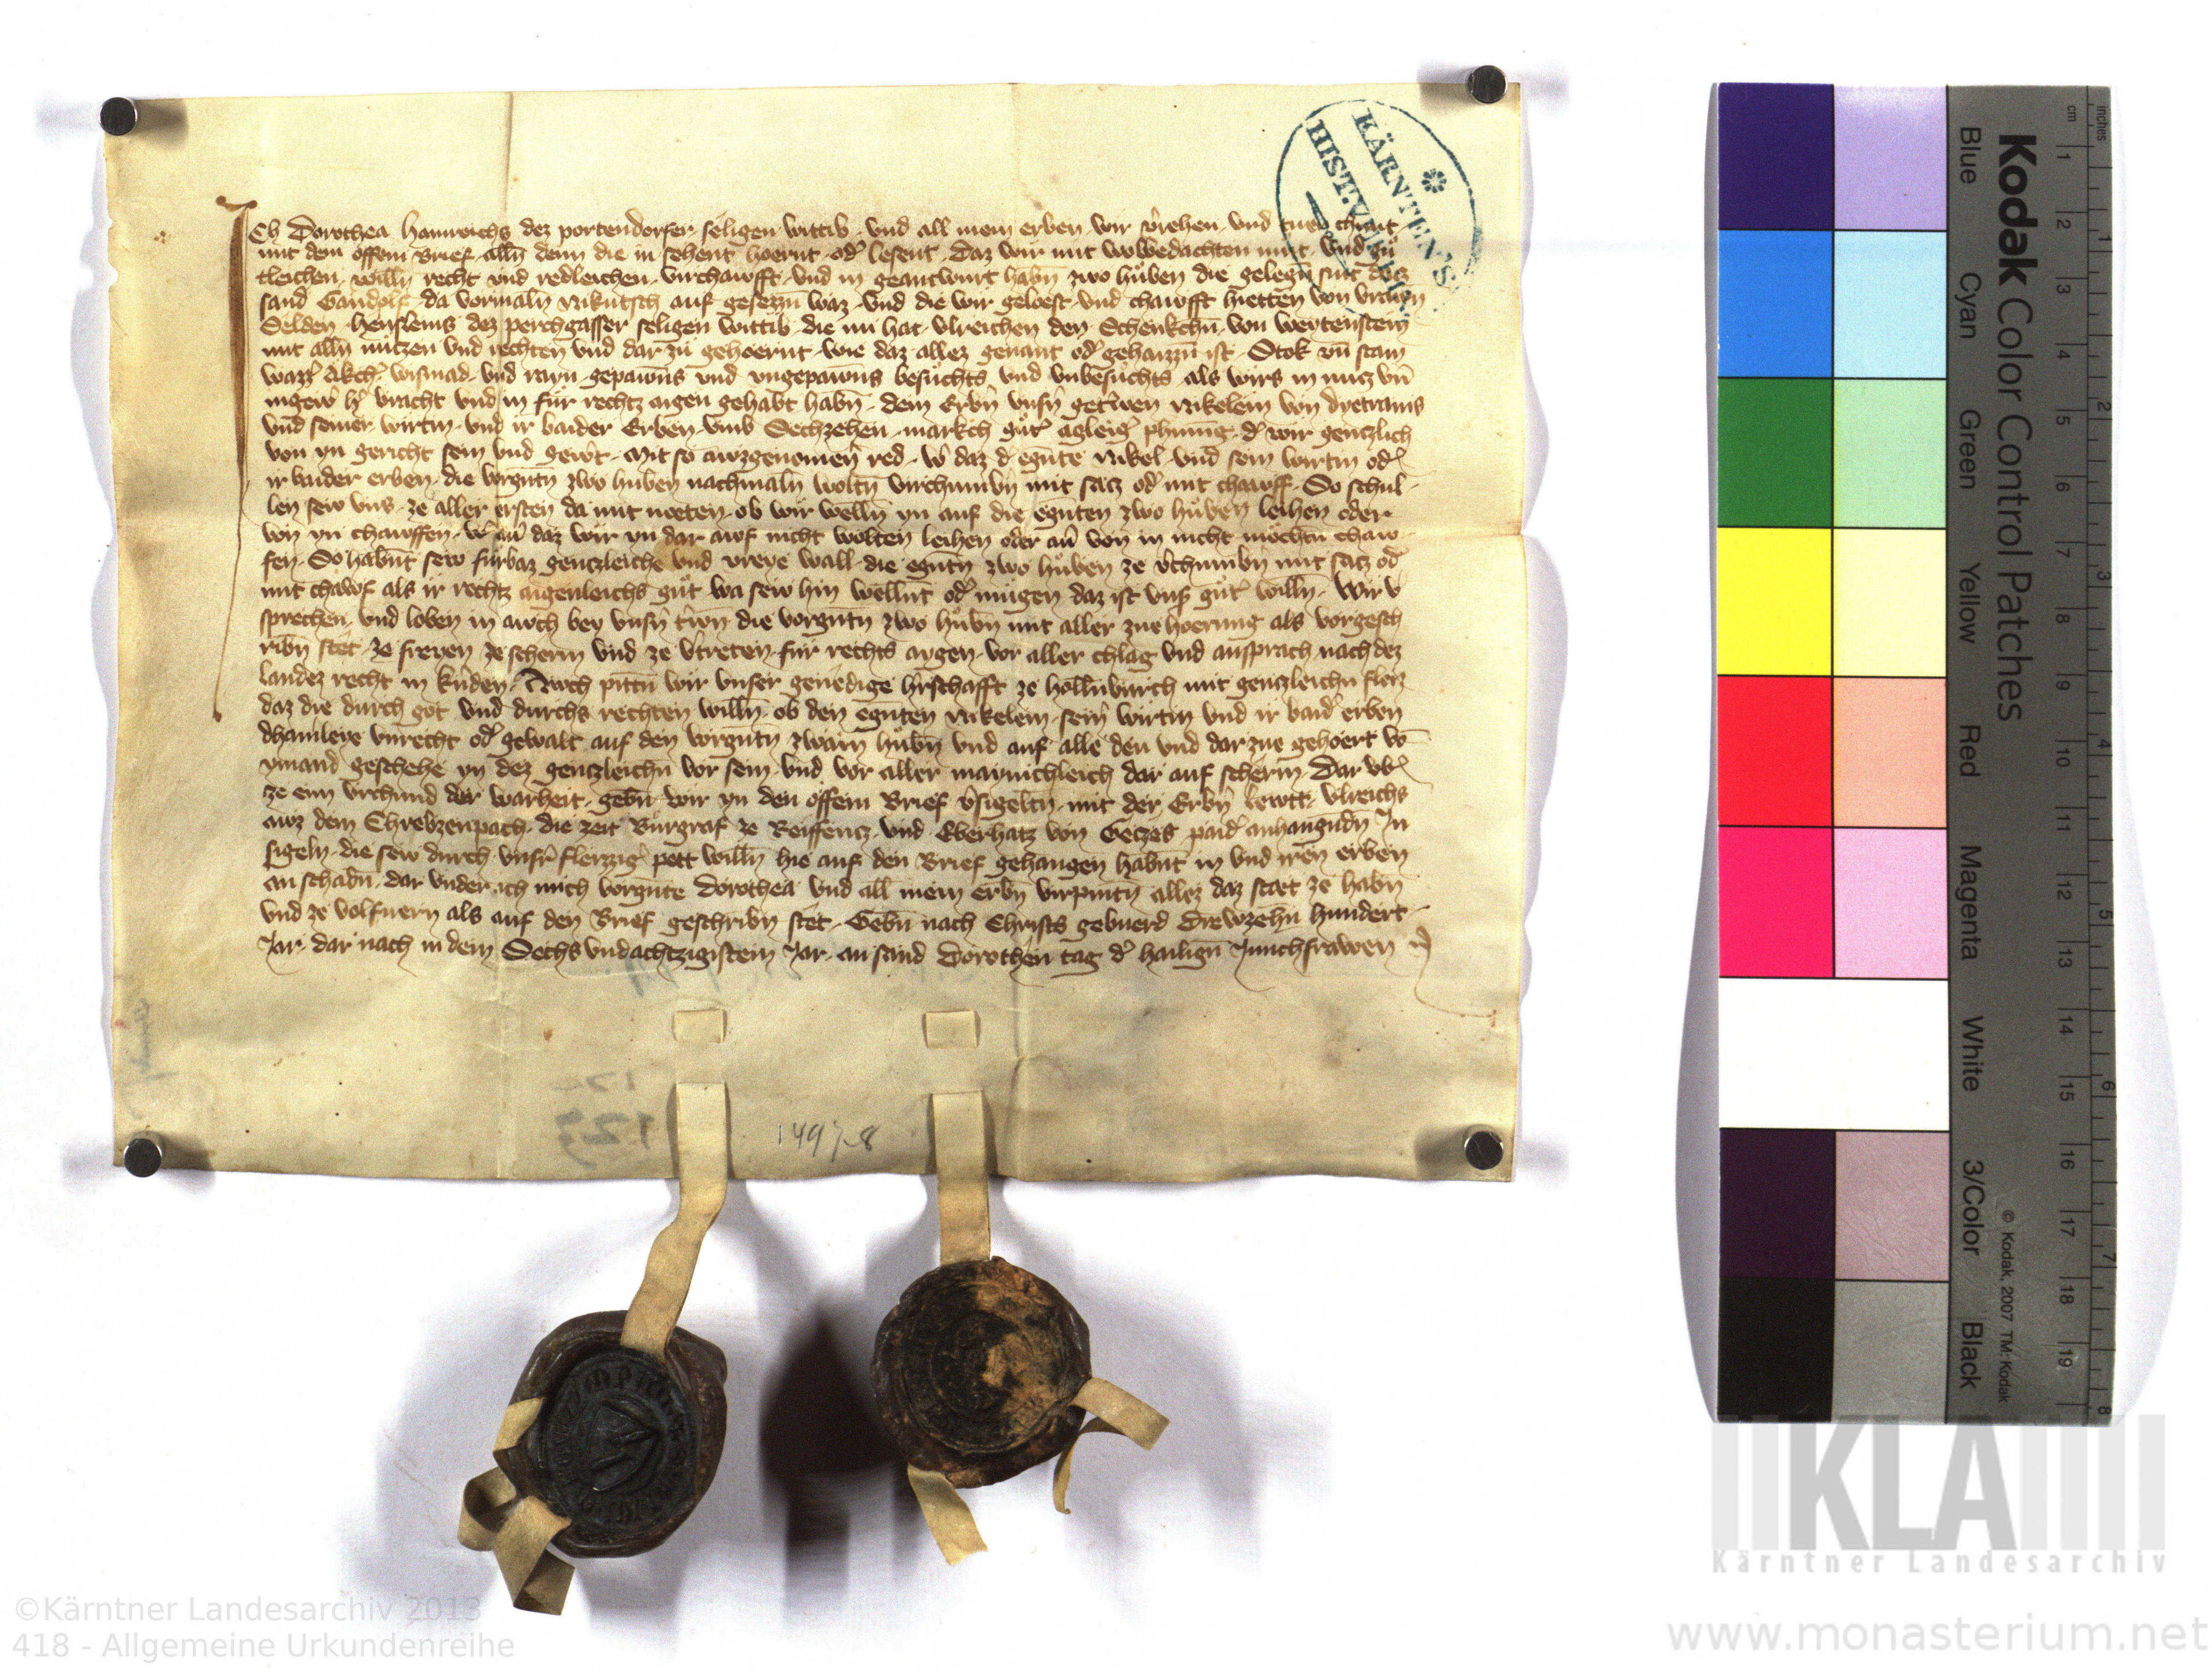 Ich Dorothea hainreichs dez portendorfer seligen wittib und all mein erben wir v̓iehen und tuen chunt
mit dem offem brief alln̄ denn die in sehent hoernt od̓ lesent daz wir mit wolbedachten mut und gu
tleichen willn̄ recht und redleichen virchawfft und in geantwurt habn̄ zwo hůben die gelegn̄ sint datz
sand Gandolf da vormaln Nikutsch auf gesezzn waz und die wir geloest und chawfft hietten von vrawn
Selden henslems dez perchgasser seligen wittib die nu hat Ulreichen den Schenkchn̄ von wertenstein
mit alln̄ nutzen und rechten und dar zů gehoernt wie daz allez genant od̓ gehaizzn̄ ist Stok un̄ stain
wazz̓ akch̓ wismad und rayn gepawns und ungepawns besuchts und unbesuchts als wirs in nutz un̄
ingew̓ h̓ bracht und in für rechtz aigen gehabt habn̄ dem Erbn̄ unsn̓ getrwen Nikelein von dyetrams
und seiner wirtin und ir baider Erben umb Sechzehen markch gůt̓ agleig̓ phning d̓ wir gentzlich
von yn gericht sein und gew̓t Mit so auzgenomen̓ red w̓ daz d̓ egn̄te Nikel und sein wirtin od̓
ir baider erben die vorgn̄tn zwo huben nachmaln woltn̄ virchumb̓n mit satz od̓ mit chawff So schul
len sew uns ze aller ersten da mit noeten ob wir welln̄ yn auf die egn̄ten zwo hůben leihen oder
von yn chawffen w̓ an̄ daz wir yn dar auf nicht wolten leihen oder an̄ von in nicht mochtn̄ chaw
fen So habnt sew fürbaz gentzleiche und vreye wall die egn̄tn zwo hůben ze v̓chumb̓n mit satz od̓
mit chawf als ir rechtz aigenleichs gůt wa sew hin wellnt od̓ mugen daz ist uns̓ gůt̓ willn̄ Wir v̓
sprechen und loben in awch bey unsn̓ trwn̄ die vorgn̄tn zwo hůbn̄ mit aller zue hoerung als vorgesch
ribn̄ stet ze freyen ze scherm und ze v̓treten für rechts aygen vor aller chlag und ansprach nach dez
landez recht in k̓nden Awch pittn̄ wir unser genedige h̓rschafft ze hollnburch mit gentzleichn fleiz
daz die durch got und durchs rechten willn̄ ob den egn̄ten Nikelein sein̓ wirtin und ir baid̓ erben
dhainleye unrecht od̓ gewalt auf den vorgn̄tn zwain hůbn̄ und auf alle den und dar zue gehoert vo̅
ymand geschehe yn dez gentzleichn̄ vor sein und vor aller mainichleich dar auf scherm Dar ub̓
ze einr urchund der warheit gebn̄ wir yn den offem brief v̓sigeltn̄ mit der Erbn̓ lewtt Ulreichs
auz dem Chrebzenpach die zeit Burgraf ze Reiffentz und Eberhatz von Getzes paid̓ anhangundn̄ In
sigeln die sew durch unsr̓ fleizzig̓ pett willn̄ hie auf den brief gehangen habnt in und iren erben
an schadn̄ dar under ich mich vorgn̄te Dorothea und all mein erbn̄ virpintn allez daz staet ze habn̄
und ze volfuern als auf den brief geschribn stet Gebn̄ nach Christs gebuerd drewzehn hundert
Jar dar nach in dem Sechs und achtzigistem Jar an sand Dorothen tag d̓ hailign̄ Junchfrawen
KÄRNTEN'S
HIST. VEREIN
1497-8
123
Kodak Color Control Patches
Blue Cyan Green Yellow Red Magenta White 3/Color Black
© Kodak, 2007 TM: Kodak
inches 1 2 3 4 5 6 7 8
cm 1 2 3 4 5 6 7 8 9 10 11 12 13 14 15 16 17 18 19
KLA
Kärntner Landesarchiv
©Kärntner Landesarchiv 2013
418 - Allgemeine Urkundenreihe
www.monasterium.net